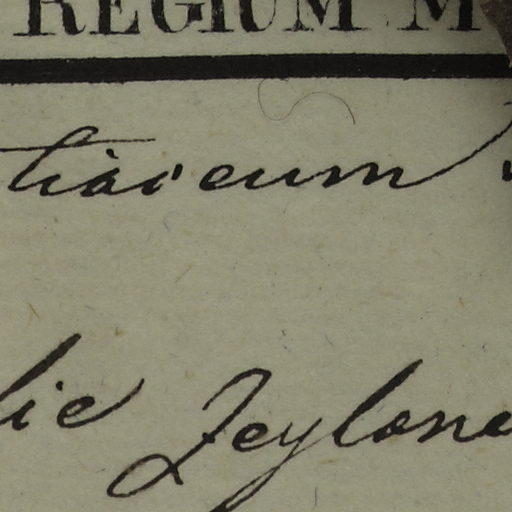 REGIUM M
tiaceum
lie Zeylone